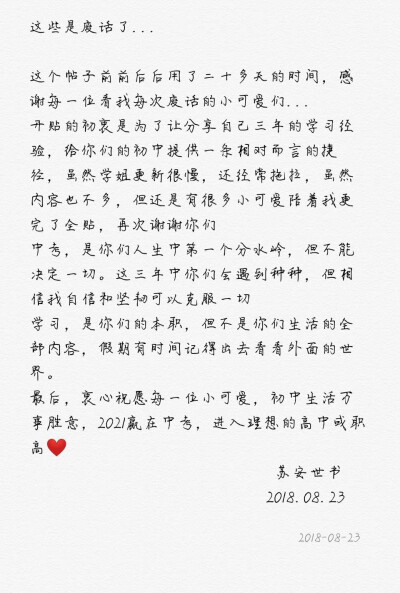 这些是废话了...
这个帖子前前后后用了二十多天的时间，感
谢每一位看我每次废话的小可爱们...
开贴的初衷是为了让分享自己三年的学习经
验，给你们的初中提供一条相对而言的捷
径，虽然学姐更新很慢，还经常拖拉，虽然
内容也不多，但还是有很多小可爱陪着我更
完了全贴，再次谢谢你们
中考，是你们人生中第一个分水岭，但不能
决定一切。这三年中你们会遇到种种，但相
信我自信和坚韧可以克服一切
学习，是你们的本职，但不是你们生活的全
部内容，假期有时间记得出去看看外面的世
界。
最后，衷心祝愿每一位小可爱，初中生活万
事胜意，2021赢在中考，进入理想的高中或职
高❤️
苏安世书
2018.08.23
2018-08-23